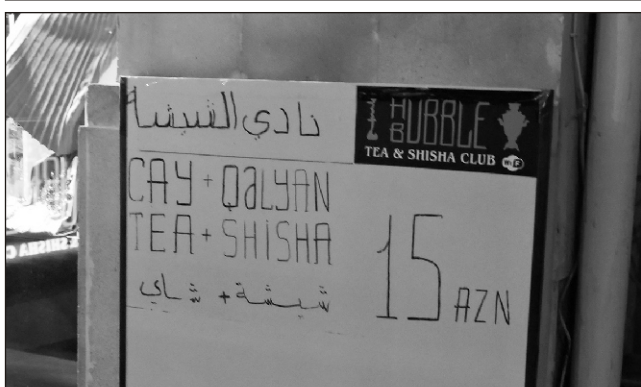 نادي الشيشة
HUBBLE
BUBBLE
TEA & SHISHA CLUB
WiFi
CAY + QƏLYAN
TEA + SHISHA
شيشة + شاي
15 AZN